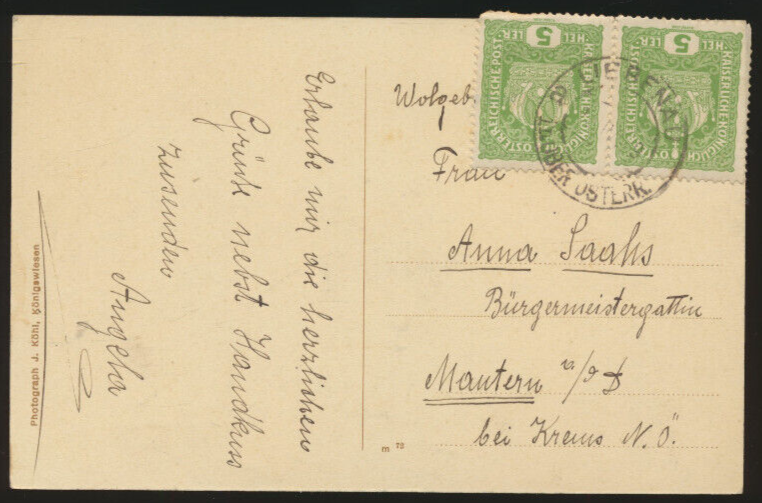 Erlaube mir die herzlichen
Grüße nebst Handkuss
zusenden
Angela
Photograph J. Köhl, Königswiesen
m 73
Wolgeb
Frau
Anna Saahs
Bürgermeistergattin
Mautern a/d D
bei Krems N. Ö.
KAISERLICHE KÖNIGLICHE
ÖSTERREICHISCHE POST
5
HEL
LER
KAISERLICHE KÖNIGLICH
ÖSTERREICHISCHE POST
5
HEL
LER
LIEBENAU
OBER ÖSTERR.